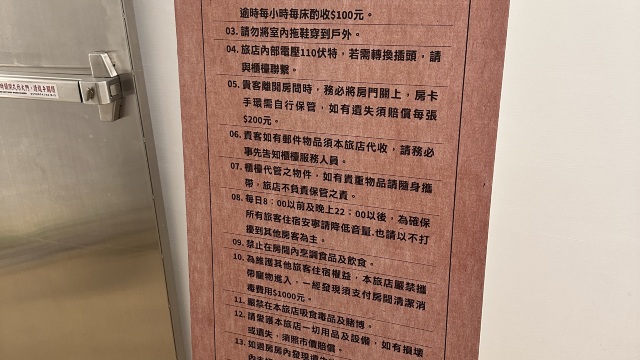 逾時每小時每床酌收$100元。
03. 請勿將室內拖鞋穿到戶外。
04. 旅店內部電壓110伏特，若需轉換插頭，請
與櫃檯聯繫。
05. 貴客離開房間時，務必將房門關上，房卡
手環需自行保管，如有遺失須賠償每張
$200元。
06. 貴客如有郵件物品須本旅店代收，請務必
事先告知櫃檯服務人員。
07. 櫃檯代管之物件，如有貴重物品請隨身攜
帶，旅店不負責保管之責。
08. 每日8：00以前及晚上22：00以後，為確保
所有旅客住宿安寧請降低音量.也請以不打
擾到其他房客為主。
09. 禁止在房間內烹調食品及飲食。
10. 為維護其他旅客住宿權益，本旅店嚴禁攜
帶寵物進入，一經發現須支付房間清潔消
毒費用$1000元。
11. 嚴禁在本旅店吸食毒品及賭博。
12. 請愛護本旅店一切用品及設備，如有損壞
或遺失，須照市價賠償。
13. 如遇房間內發現遺失